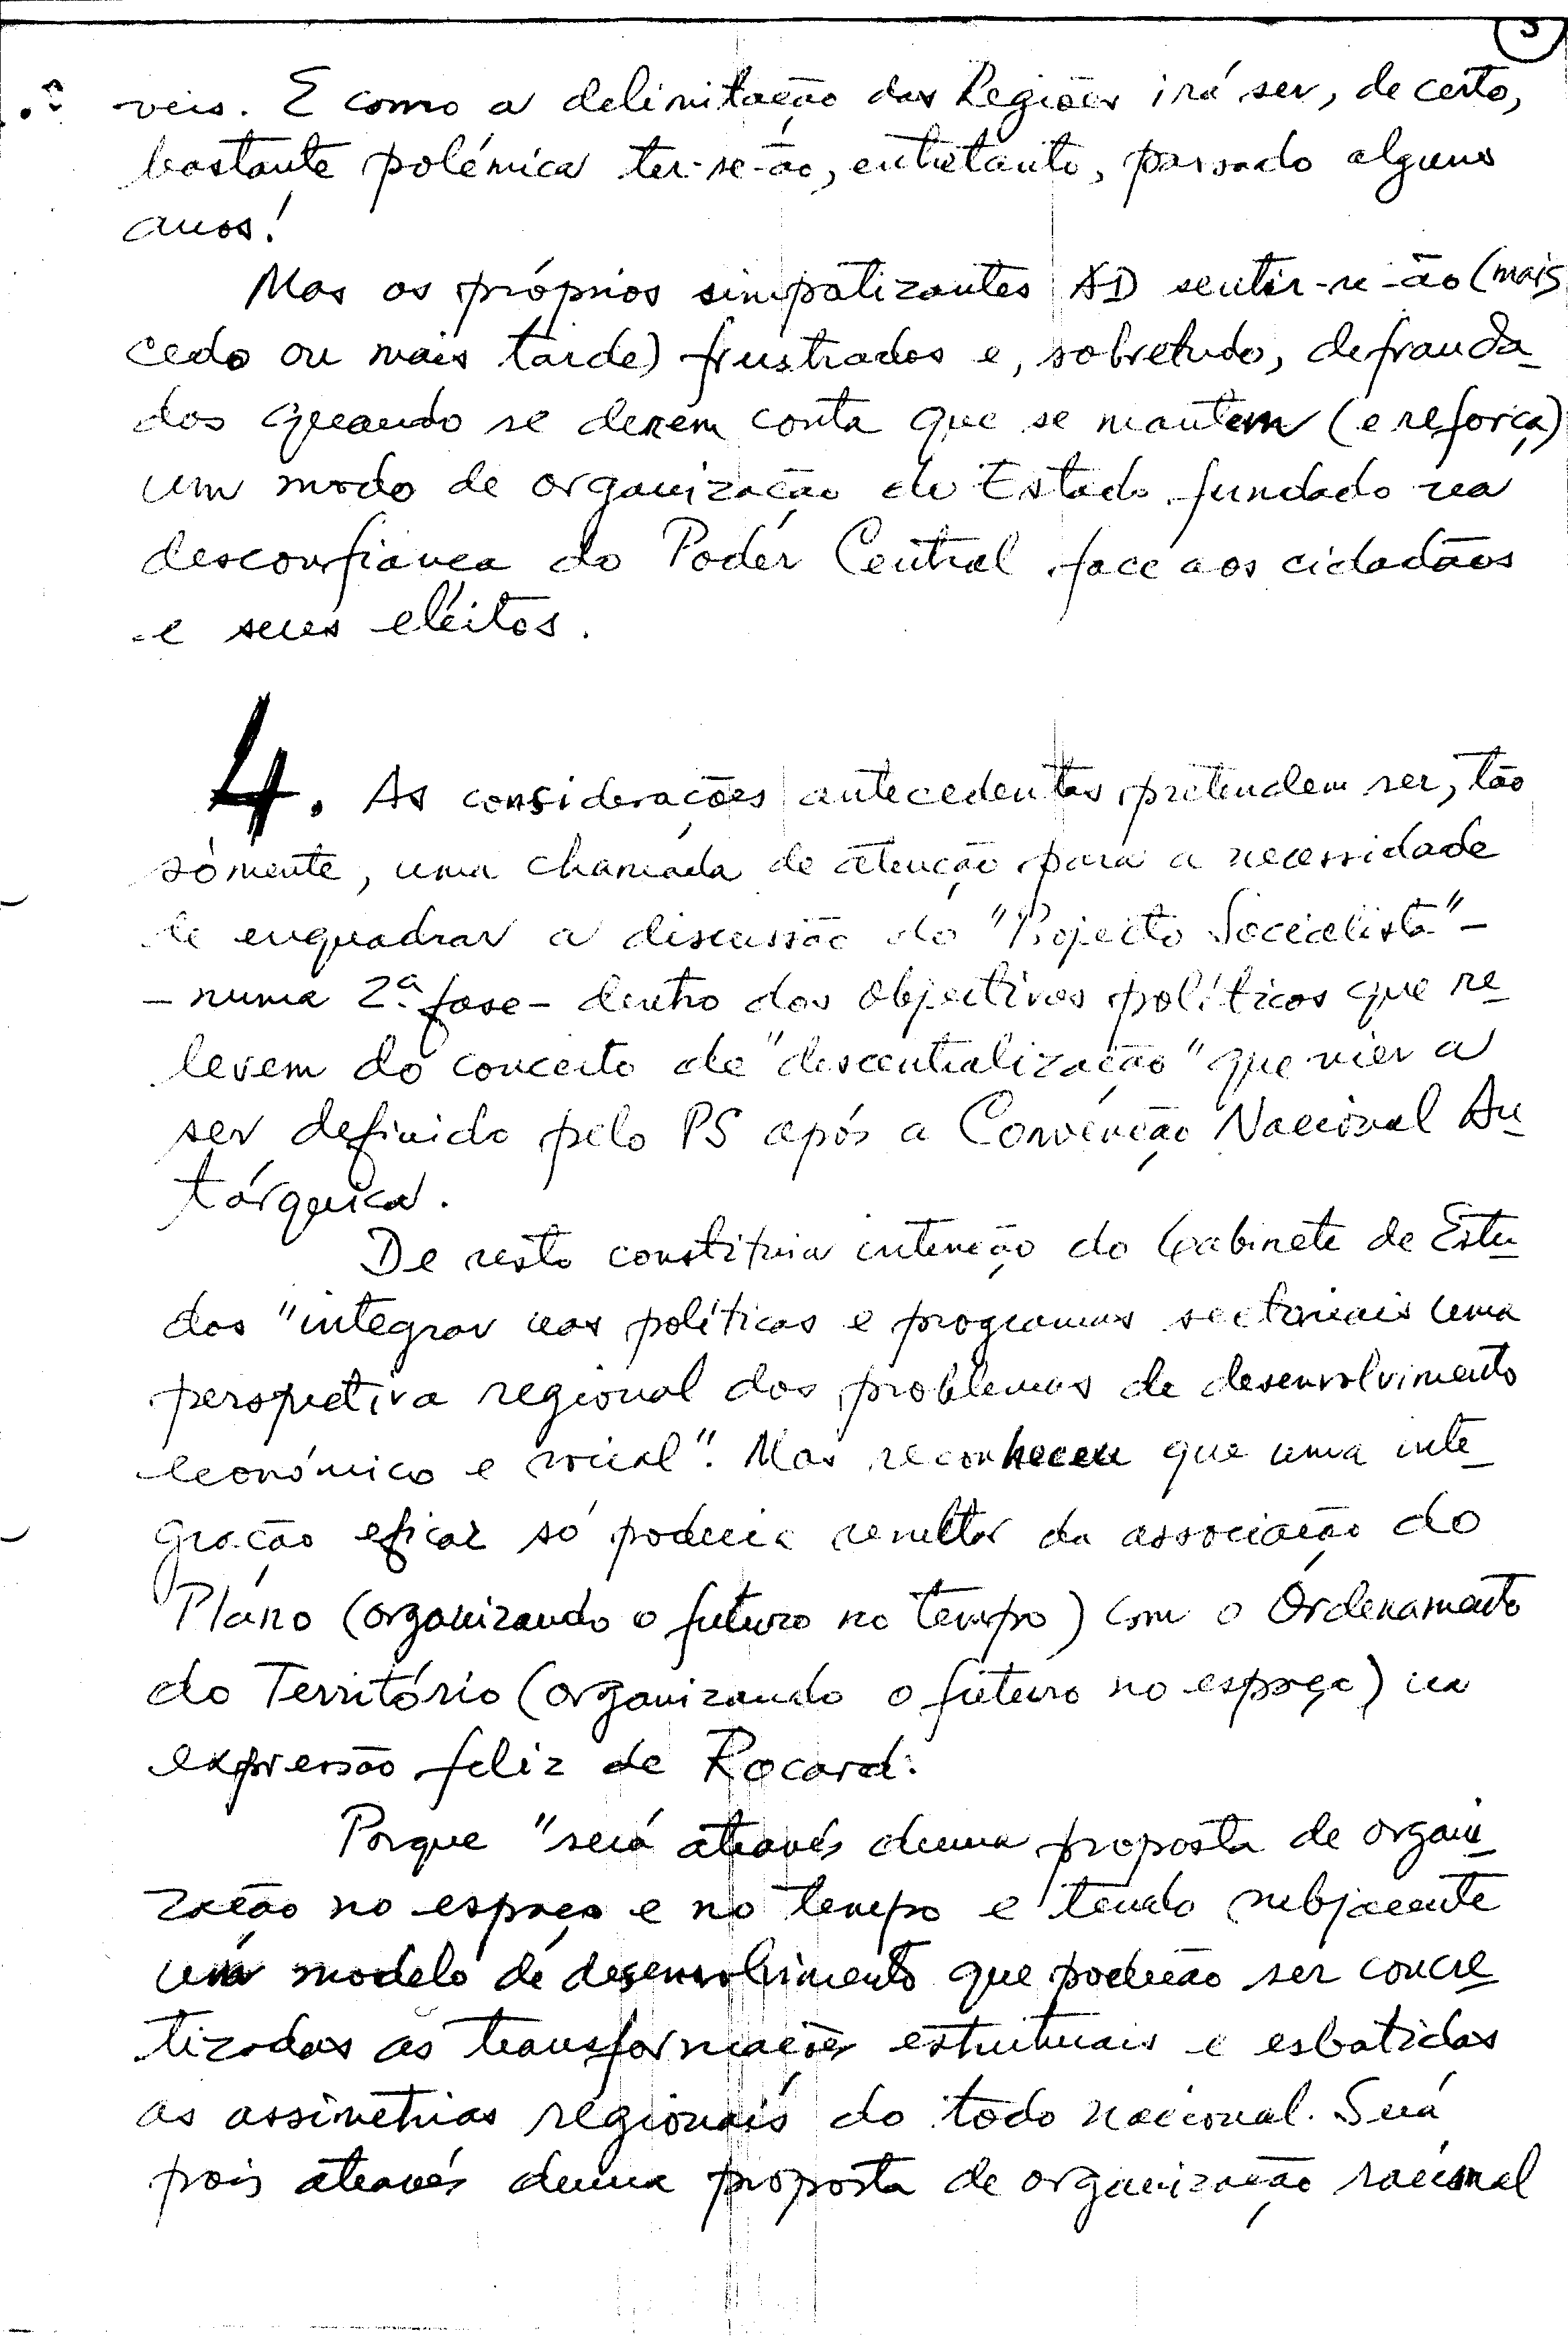 veis. E como a delimitação das Regiões irá ser, de certo,
bastante polémica ter-se-ão, entretanto, passado alguns
anos!
Mas os próprios simpatizantes AD sentir-se-ão (mais
cedo ou mais tarde) frustrados e, sobretudo, defrauda-
dos quando se derem conta que se mantem (e reforça)
um modo de organização do Estado fundado na
desconfiança do Poder Central face aos cidadãos
e seus eleitos.
4. As considerações antecedentes pretendem ser, tão
sómente, uma chamada de atenção para a necessidade
de enquadrar a discussão do "Projecto Socialista" -
- numa 2ª fase - dentro dos objectivos políticos que re-
levem do conceito de "descentralização" que vier a
ser definido pelo PS após a Convenção Nacional Au-
tárquica.
De resto constituia intenção do Gabinete de Estu-
dos "integrar nas políticas e programas sectoriais uma
perspectiva regional dos problemas de desenvolvimento
económico e social". Mas reconheceu que uma inte-
gração eficaz só poderia resultar da associação do
Plano (organizando o futuro no tempo) com o Ordenamento
do Território (organizando o futuro no espaço) na
expressão feliz de Rocard.
Porque "será através duma proposta de organi-
zação no espaço e no tempo e tendo subjacente
um modelo de desenvolvimento que poderão ser concre-
tizadas as transformações estruturais e esbatidas
as assimetrias regionais do todo nacional. Será
pois através duma proposta de organização racional